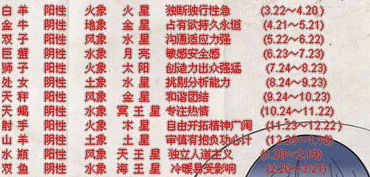 白羊 阳性 火象 火星 独断独行性急 (3.22～4.20)
金牛 阴性 地象 金星 占有欲持久永恒 (4.21～5.21)
双子 阳性 风象 水星 沟通适应力强 (5.22～6.22)
巨蟹 阴性 水象 月亮 敏感安全感 (6.23～7.23)
狮子 阳性 火象 太阳 创造力出众强猛 (7.24～9.23)
处女 阴性 土象 水星 挑剔分析能力 (8.24～9.23)
天秤 阳性 风象 金星 和谐团结 (9.24～10.23)
天蝎 阴性 水象 冥王星 专注热情 (10.24～11.22)
射手 阳性 火象 木星 自由开拓精神广阔 (11.23～12.22)
山羊 阴性 土象 土星 审值有抱负功心计
水瓶 阳性 风象 天王星 独立人道主义
双鱼 阴性 水象 海王星 冷暖易受影响 (2.20～3.21)